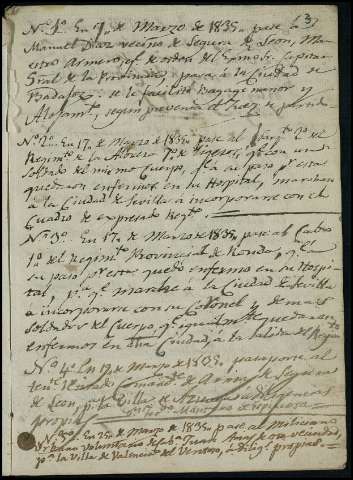 3
Nº 1º En 9 de Marzo de 1835. pase a
Manuel Diaz vecino de Segura de Leon, Ma-
estro Armero, pr. de orden del Exmo. Sr. Capitan
Gral de la Provincia, pasa a la Ciudad de
Badajoz: se le facilita Bagage menor y
Alojamto, segun prevenda
Nº 2º En 17 de Marzo de 1835. pase al Sargto 2º del
Regimto de la Albuera 7º de Ligeros, qe con un
soldado del mismo Cuerpo, a su paso pr esta
quedaron enfermos en su Hospital, marchan
a la Ciudad de Sevilla a incorporarse con el
Cuadro de expresado Regto.
Nº 3º En 17 de Marzo de 1835. pase al Cabo
1º del Regimto Provincial de Ronda, qe a
su paso pr esta quedó enfermo en su Hospi-
tal, pa qe marche a la Ciudad de Sevilla
a incorporarse con su Coronel y demas
soldados del Cuerpo, qe igualmte quedaron
enfermos en dha Ciudad, a la salida del Regto
Nº 4º En 19 de Marzo de 1835. pasaporte al
tente de Segura
de Leon, pa la Villa de a diligencias
propias
Nº 5º En 25 de Marzo de 1835. pase al Miliciano
Urbano Voluntario de Caba Juan de esta vecindad,
pa la Villa de Valencia del Ventoso, a diligs propias.